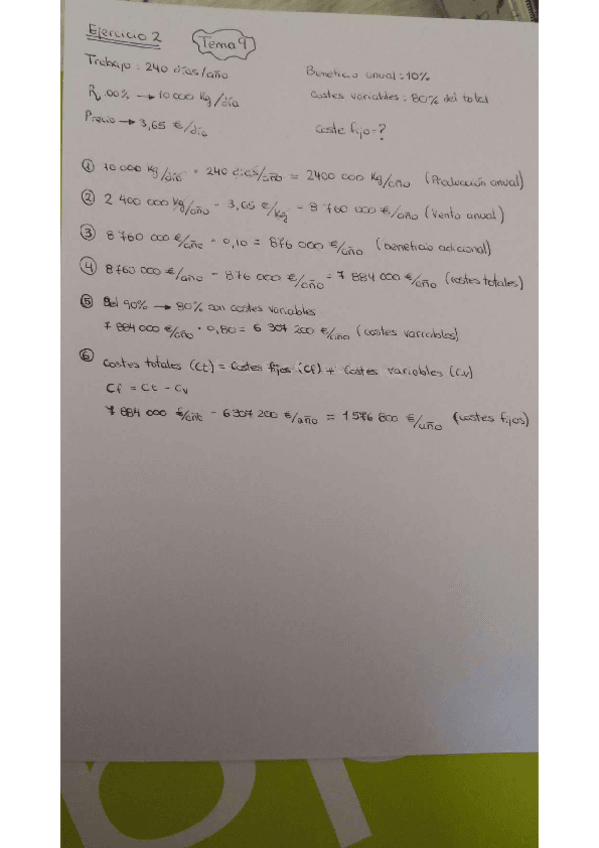 Ejercicio 2 Tema 9
Trabajo: 240 días/año
Beneficio anual: 10%
R. 00% → 10 000 kg/día
Costes variables: 80% del total
Precio → 3,65 €/día
Coste fijo = ?
① 10 000 kg/día · 240 días/año = 2400 000 kg/año (Producción anual)
② 2 400 000 kg/año · 3,65 €/kg = 8 760 000 €/año (Venta anual)
③ 8 760 000 €/año · 0,10 = 876 000 €/año (beneficio adicional)
④ 8760 000 €/año - 876 000 €/año = 7 884 000 €/año (costes totales)
⑤ Del 90% → 80% son costes variables
7 884 000 €/año · 0,80 = 6 307 200 €/año (costes variables)
⑥ Costes totales (Ct) = Costes fijos (Cf) + Costes variables (Cv)
Cf = Ct - Cv
7 884 000 €/año - 6307 200 €/año = 1576 800 €/año (costes fijos)